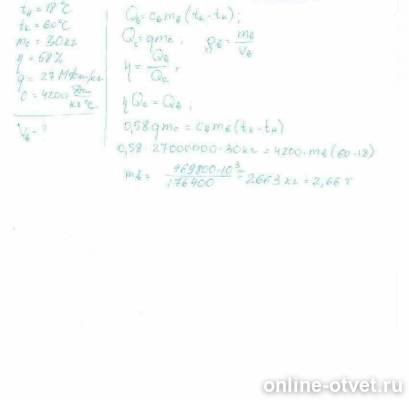 tн = 18°C
tк = 60°C
mс = 30 кг
η = 58%
q = 27 МДж/кг
C = 4200 Дж/кг°C
Vв = ?
Qв = cв mв (tк - tн);
Qс = q mс, ρв = mв/Vв
η = Qв/Qс,
ηQс = Qв;
0,58 q mс = cв mв (tк - tн)
0,58 · 27000000 · 30 кг = 4200 · mв (60 - 18)
mв = 469800·10³/176400 = 2663 кг = 2,66 т
online-otvet.ru